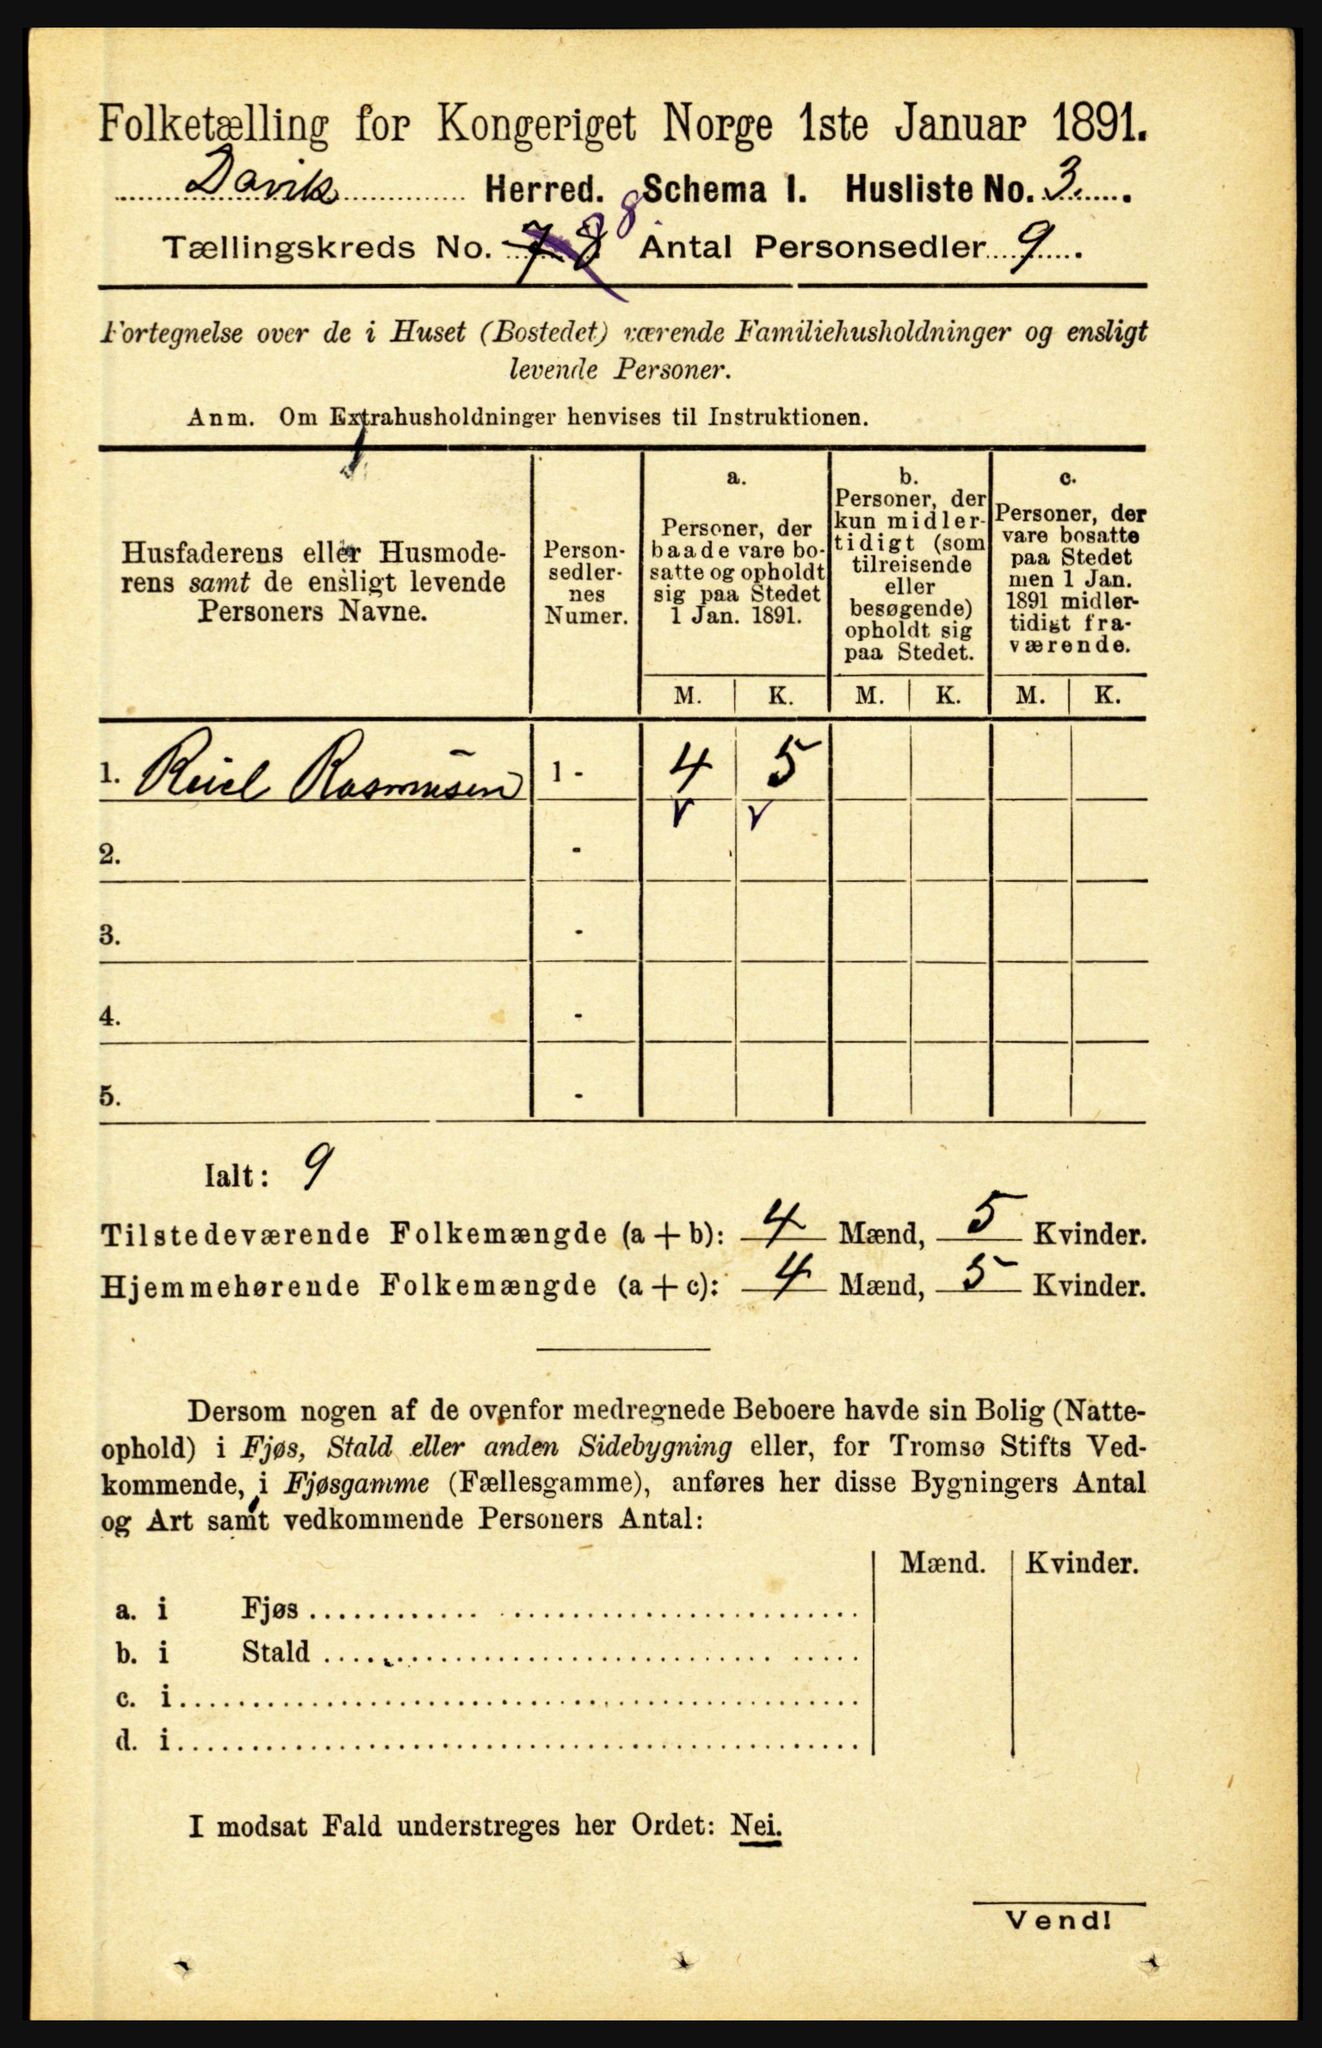 Folketælling for Kongeriget Norge 1ste Januar 1891.
Davik Herred. Schema I. Husliste No. 3.
Tællingskreds No. 7 8 8 Antal Personsedler 9.
Fortegnelse over de i Huset (Bostedet) værende Familiehusholdninger og ensligt
levende Personer.
Anm. Om Extrahusholdninger henvises til Instruktionen.
Husfaderens eller Husmode-
rens samt de ensligt levende
Personers Navne.
Person-
sedler-
nes
Numer.
a.
Personer, der
baade vare bo-
satte og opholdt
sig paa Stedet
1 Jan. 1891.
b.
Personer, der
kun midler-
tidigt (som
tilreisende
eller
besøgende)
opholdt sig
paa Stedet.
c.
Personer, der
vare bosatte
paa Stedet
men 1 Jan.
1891 midler-
tidigt fra-
værende.
M. K. M. K. M. K.
1. Rasmusen 1 - 4 5
v v
2. -
3. -
4. -
5. -
Ialt: 9
Tilstedeværende Folkemængde (a + b): 4 Mænd, 5 Kvinder.
Hjemmehørende Folkemængde (a + c): 4 Mænd, 5 Kvinder.
Dersom nogen af de ovenfor medregnede Beboere havde sin Bolig (Natte-
ophold) i Fjøs, Stald eller anden Sidebygning eller, for Tromsø Stifts Ved-
kommende, i Fjøsgamme (Fællesgamme), anføres her disse Bygningers Antal
og Art samt vedkommende Personers Antal:
Mænd. Kvinder.
a. i Fjøs
b. i Stald
c. i
d. i
I modsat Fald understreges her Ordet: Nei.
Vend!